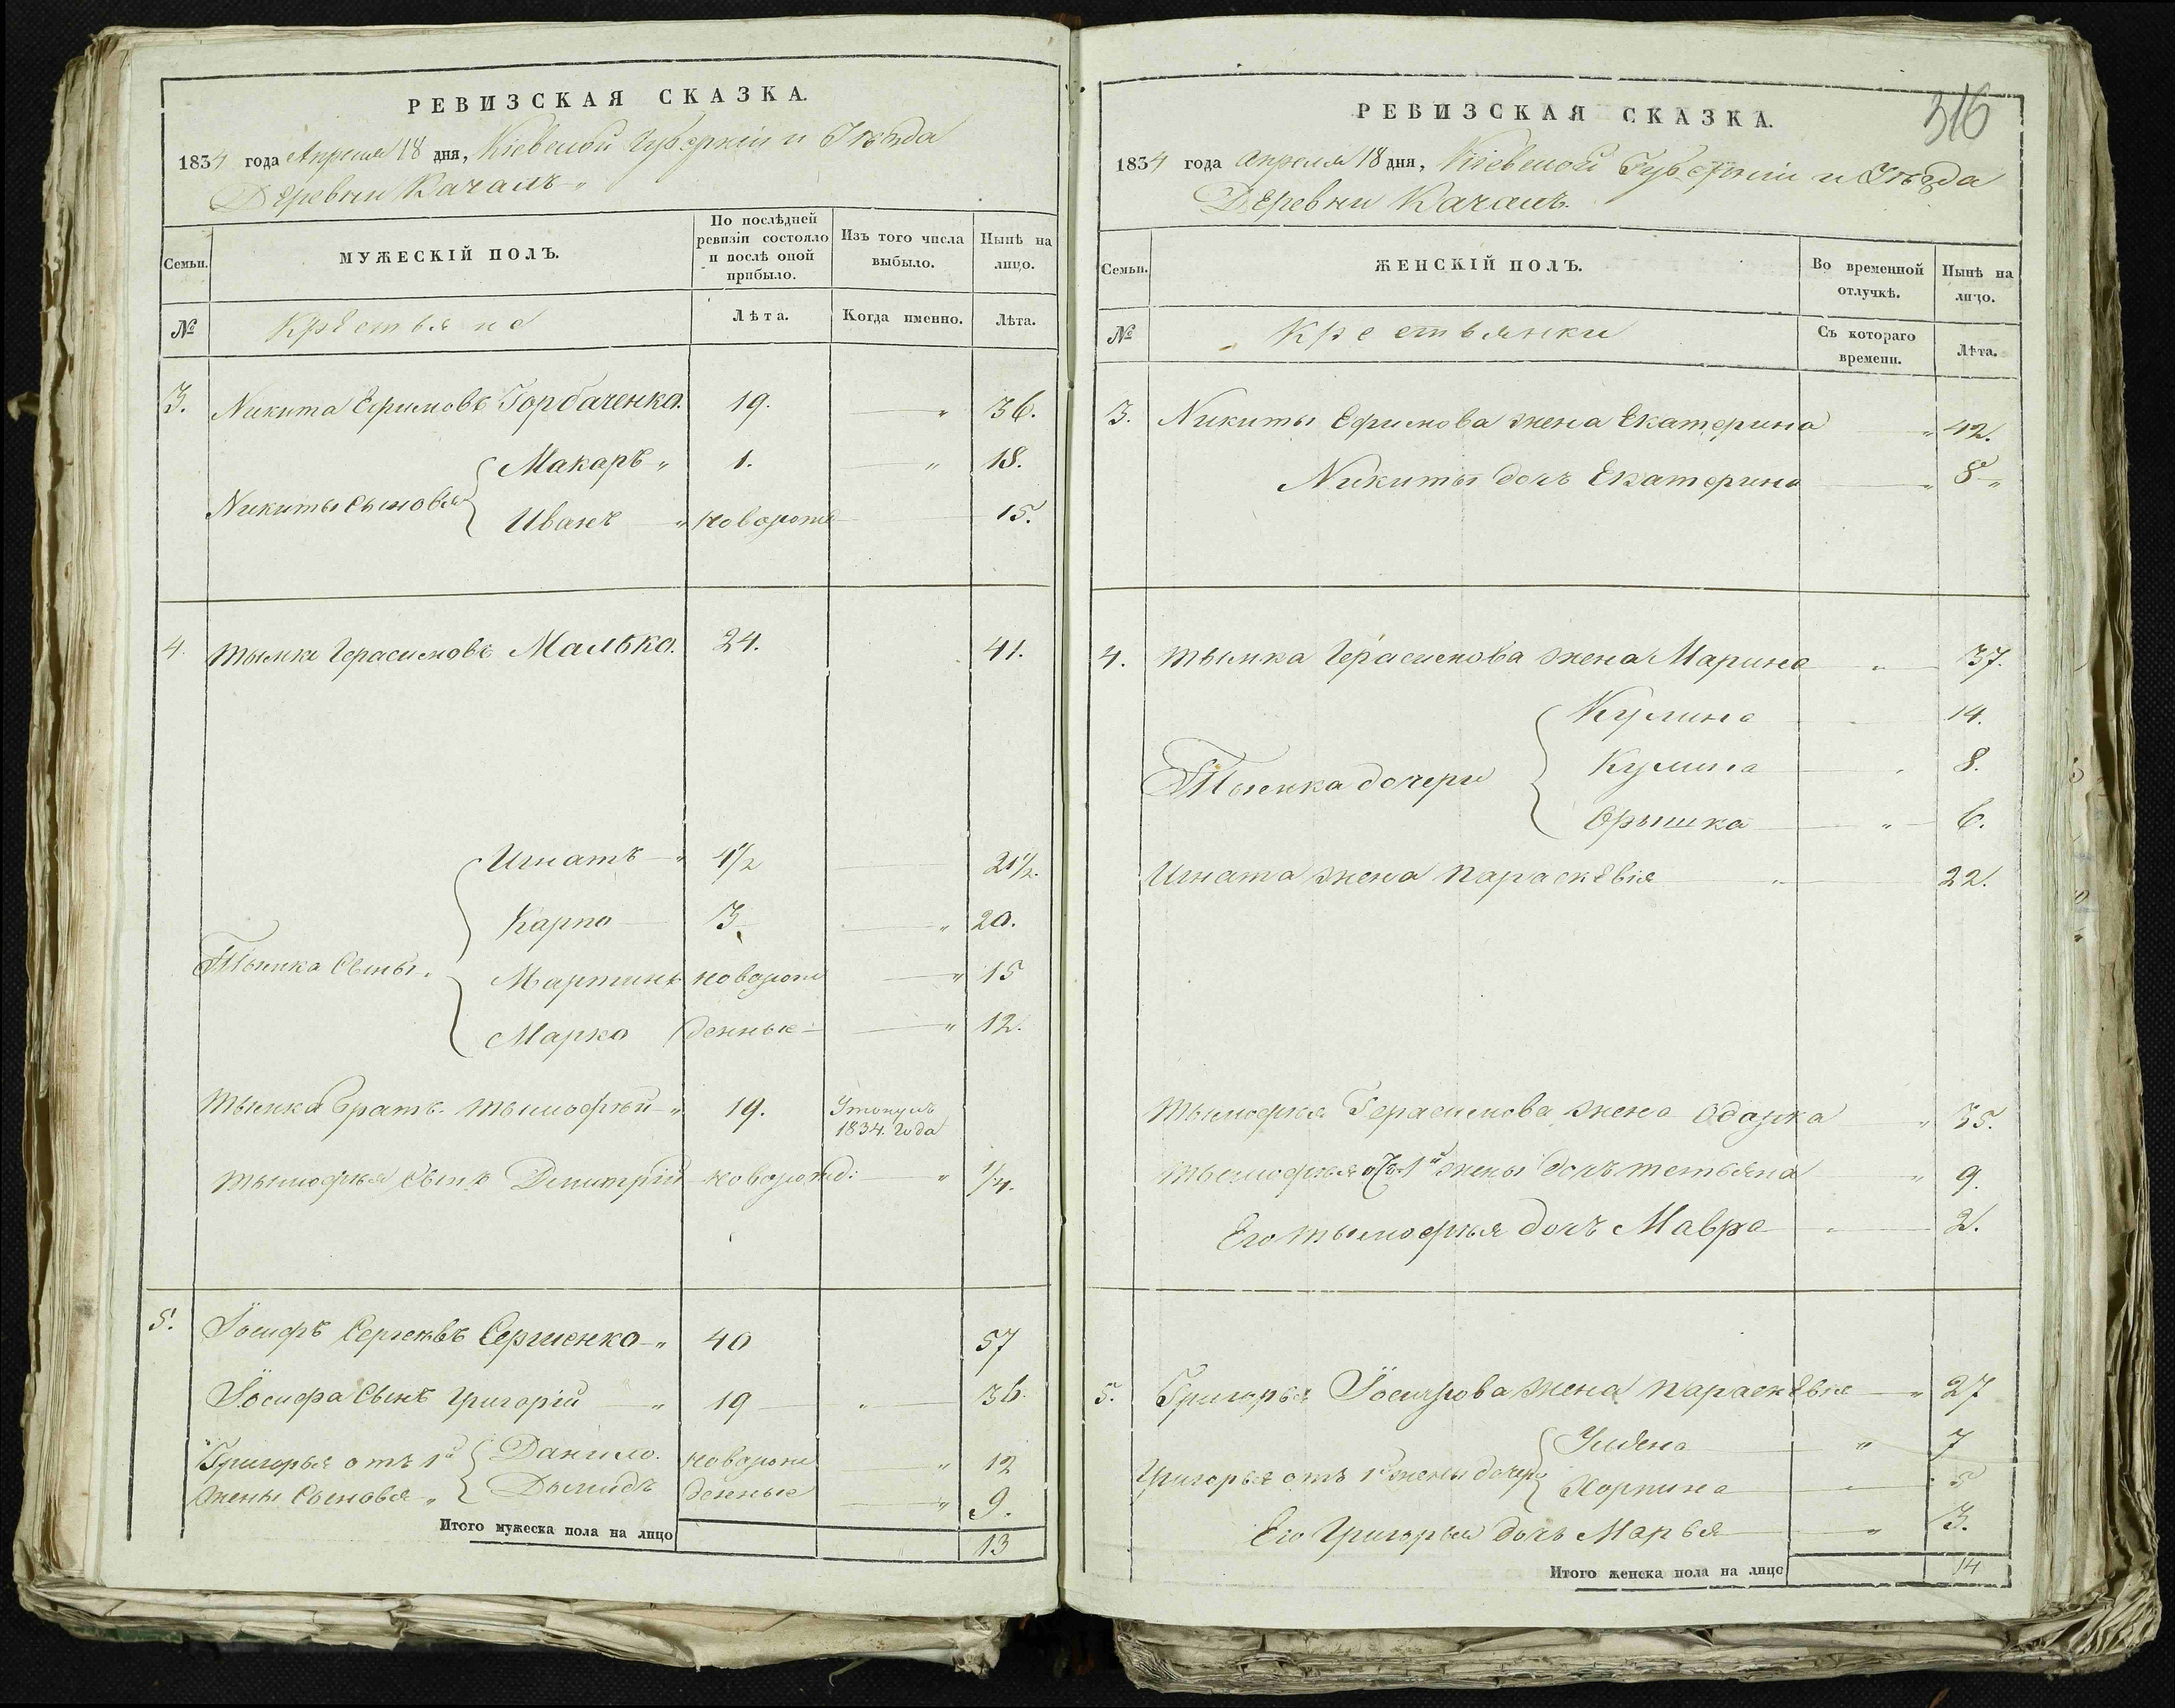 РЕВИЗСКАЯ СКАЗКА.
1834 года Апреля 18 дня, Кіевской Губерніи и Уѣзда
Деревни Качалъ
Семьи.
МУЖЕСКІЙ ПОЛЪ.
По послѣдней ревизіи состояло и послѣ оной прибыло.
Изъ того числа выбыло.
Нынѣ на лицо.
№
Крестьяне
Лѣта.
Когда именно.
Лѣта.
3. Никита Ефимовъ Горбаченко. 19. — " 36.
Макаръ " 1. — " 18.
Никиты Сыновья
Иванъ " новорожд — 15.
4. Тымка Герасимовъ Малько. 24. 41.
Игнатъ " 4½ — 21½.
Карпо 3 — " 20.
Тымка Сыны.
Мартинъ новорож — " 15
Марко денные — " 12.
Тымка братъ Тымофѣй " 19. Утонулъ
1834. Года
Тымофѣя Сынъ Дмитрій новорожд: " ¼.
5. Іосифъ Сергѣевъ Сергиенко " 40 57
Іосифа Сынъ Григорій " 19 " 36.
Григорья отъ 1й Данило. новорож " 12
жены Сыновья " Дымидъ денные " 9.
Итого мужеска пола на лицо 13
316
РЕВИЗСКАЯ СКАЗКА.
1834 года апреля 18 дня, Кіевской Губерніи и Уѣзда
Деревни Качалъ.
Семьи.
ЖЕНСКІЙ ПОЛЪ.
Во временной отлучкѣ.
Нынѣ на лицо.
№
Крестьянки
Съ котораго времени.
Лѣта.
3. Никиты Ефимова жена Екатерина " 42.
Никиты дочъ Екатерина " 8 "
4. Тымка Герасимова жена Марина " 37.
Кулина 14.
Тымка дочери
Кулина 8.
Орышка " 6.
Игната жена Параскевія " 22.
Тымофея Герасимова жена Одарка " 35.
Тымофѣя отъ 1й жены дочъ Тетьяна " 9.
Его Тымофѣя дочъ Мавра " 2.
5. Григорья Іосифова жена Параскевія " 27
Ульяна " 7
Григорья отъ 1й жены дочери
Харпина 5
Его Григорья дочъ Марья " 3.
Итого женска пола на лицо 14